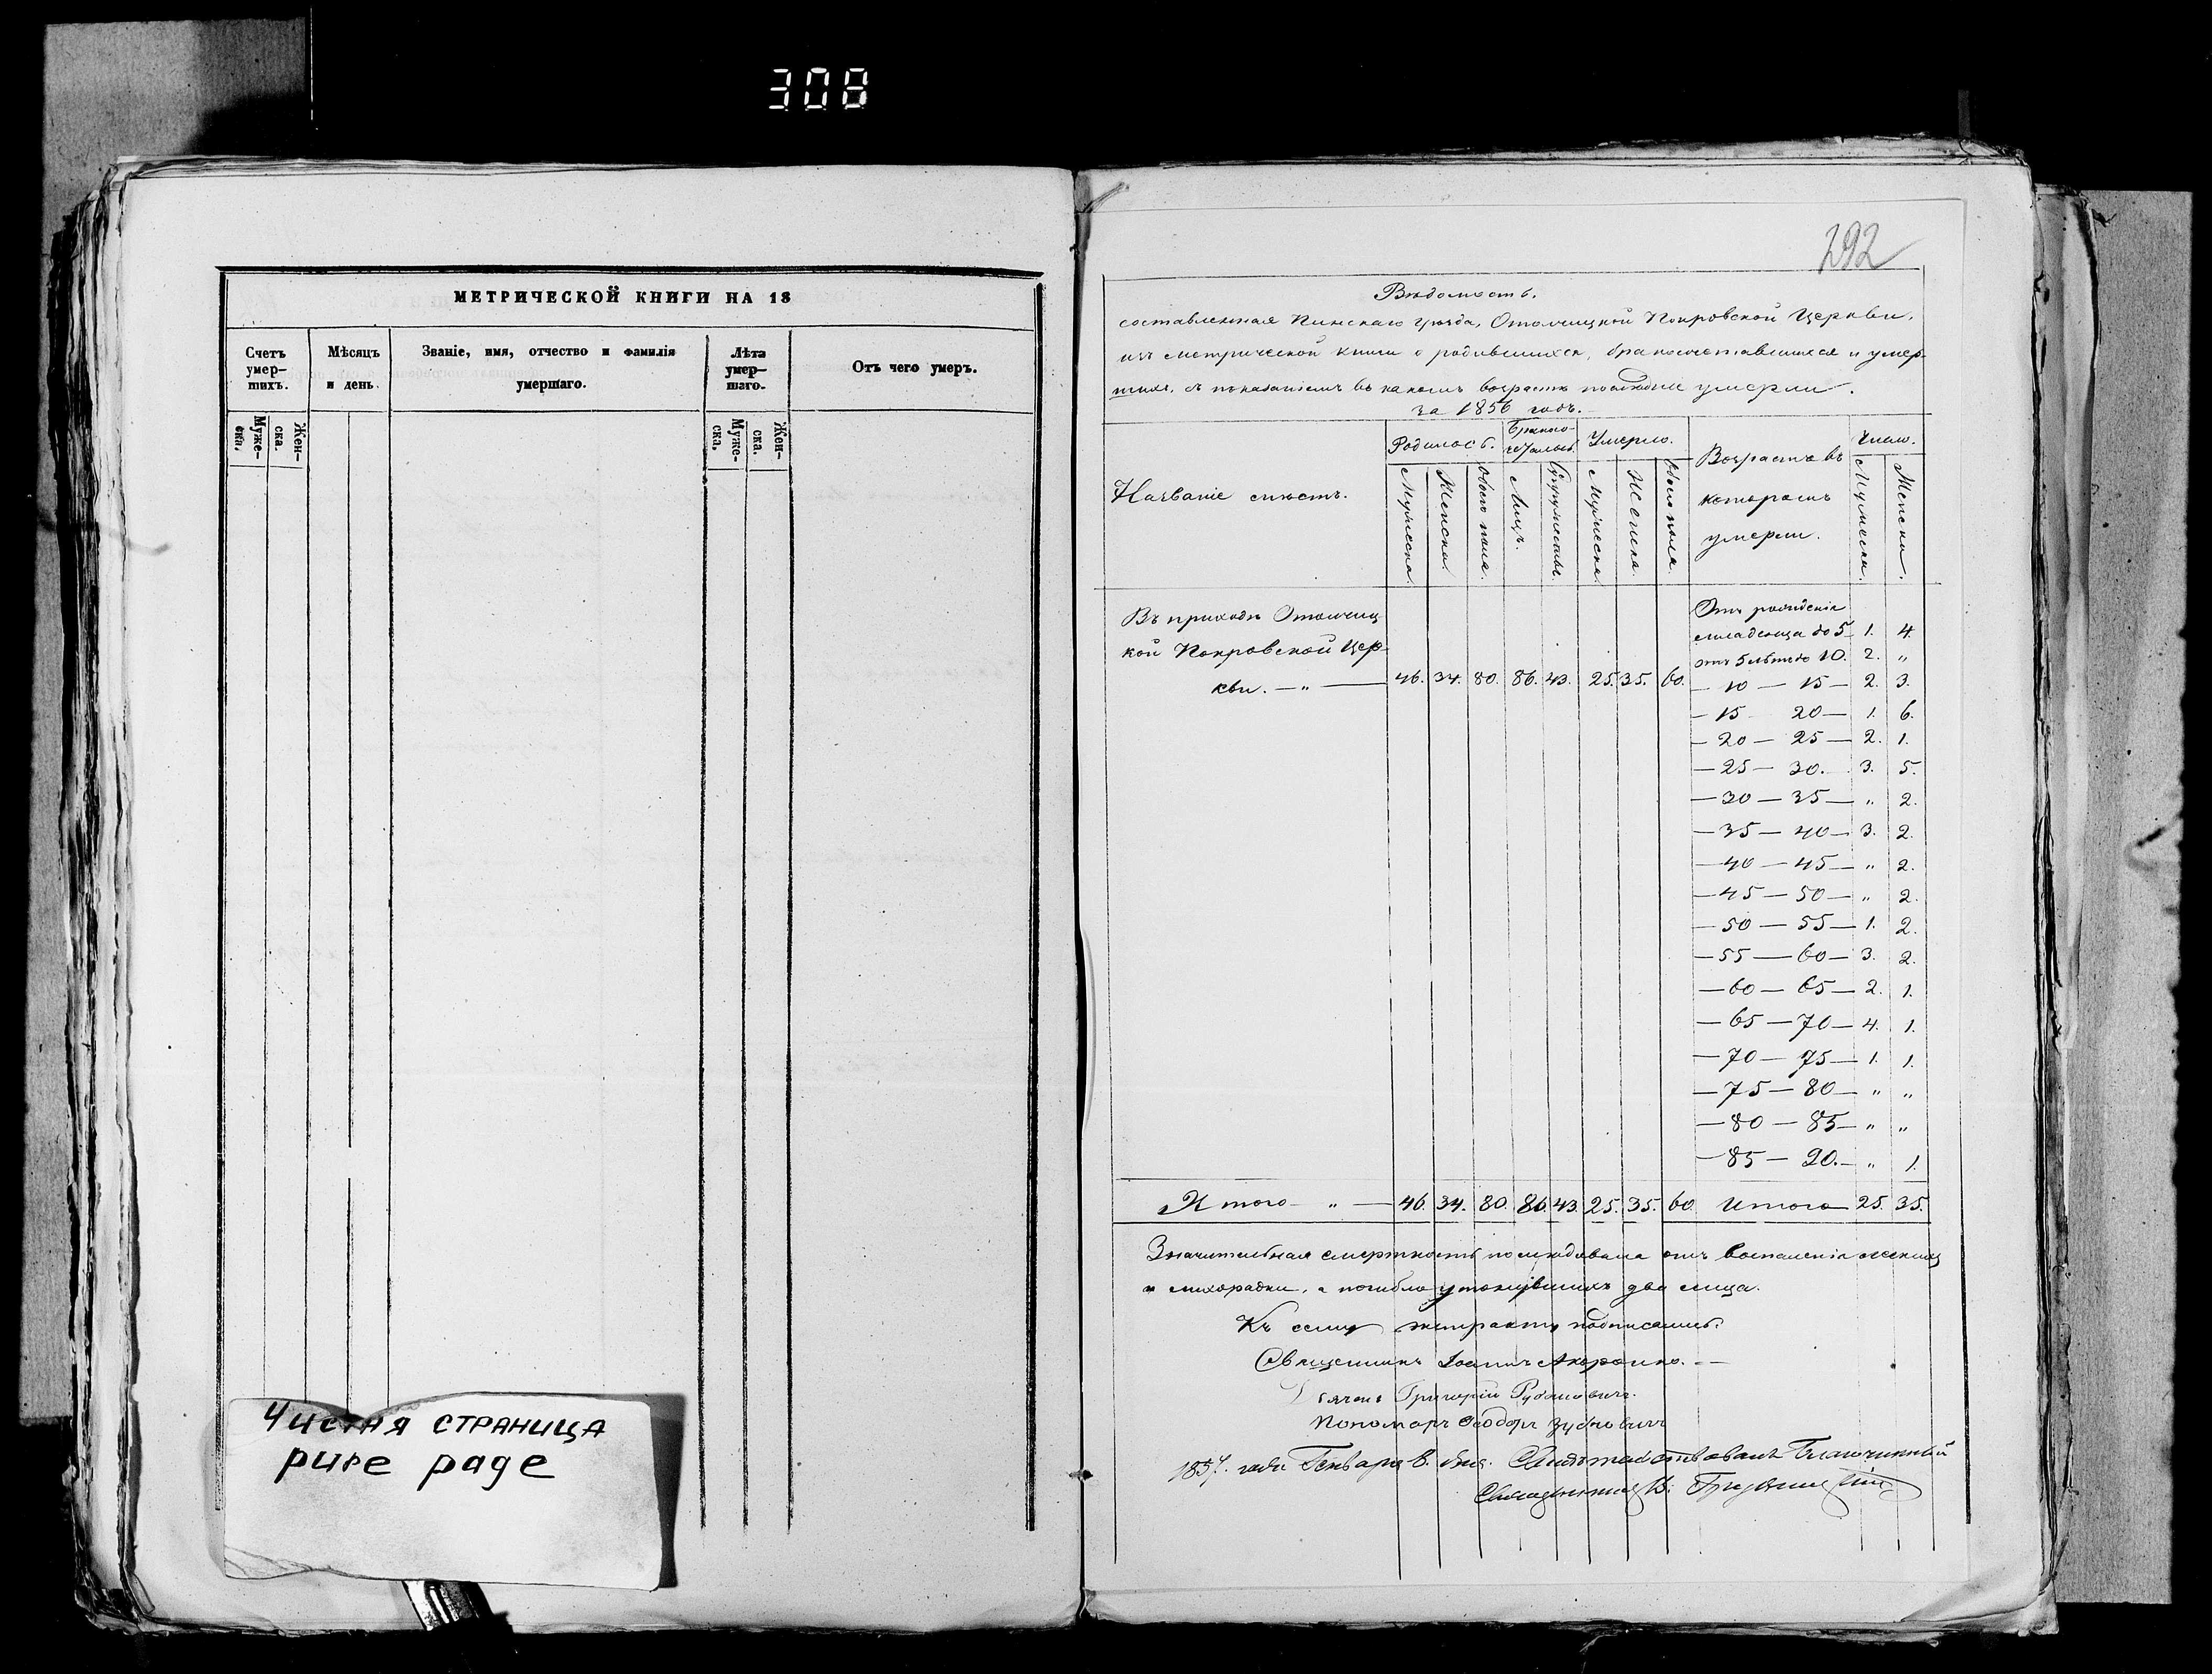 308
МЕТРИЧЕСКОЙ КНИГИ НА 18
Счетъ умер-тихъ. Мѣсяцъ и день. Званіе, имя, отчество и фамилія умершаго. Лѣта умер-шаго. Отъ чего умеръ.
Муже-ска. Жен-ска. Муже-ска. Жен-ска.
Чистая страница
pure page
292
Вѣдомость.
составленная Пинскаго уѣзда, Отолчицкой Покровской Церкви,
изъ метрической книги о родившихся, бракосочетавшихся и умер-
шихъ, съ показаніемъ въ какомъ возрастѣ послѣдніе умерли.
за 1856 годъ.
Названіе мѣстъ. Родилось. Бракосо-четалось. Умерло. Возрастъ въ которомъ умерли. Число.
Мужеска. Женска. Обоего пола. Лицъ. Супружествъ. Мужеска. Женска. Обоего пола. Мужеска. Женска.
Въ приходѣ Отолчиц
кой Покровской Цер-
кви. — „ — 46. 34. 80. 86. 43. 25. 35. 60.
Отъ рожденія
младенца до 5 1. 4.
отъ 5 лѣтъ до 10. 2. „
— 10 — 15 — 2. 3.
— 15 20 — 1. 6.
— 20 — 25 — 2. 1.
— 25 — 30. 3. 5.
— 30 — 35 — „ 2.
— 35 — 40 — 3. 2.
— 40 — 45 — „ 2.
— 45 — 50 — „ 2.
— 50 — 55 — 1. 2.
— 55 — 60 — 3. 2.
— 60 — 65 — 2. 1.
— 65 — 70 — 4. 1.
— 70 — 75 — 1. 1.
— 75 — 80 — „ „
— 80 — 85 — „ „
— 85 — 90. — „ 1.
Итого — „ — 46. 34. 80. 86. 43. 25. 35. 60. Итого 25. 35.
Значительная смертность послѣдовала отъ воспаленія
и лихорадки, а погибло утонувшихъ два лица.
Къ сему экстракту подписались:
Священникъ Іоаннъ
Дьячекъ Григорій
Пономарь Ѳеодоръ
1857. года Генваря 8. дня. Свидѣтельствовалъ Благочинный
Священникъ В.